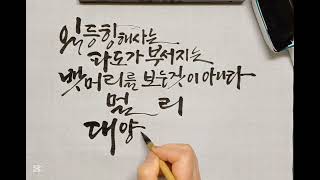 일등항해사는
파도가 부서지는
뱃머리를 보는것이 아니다
멀리
대양